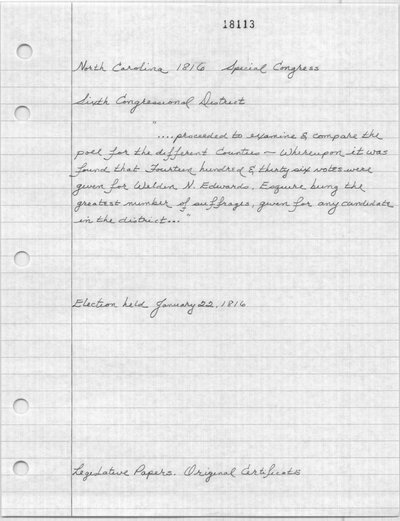 18113
North Carolina 1816 Special Congress
Sixth Congressional District
"....proceeded to examine & compare the
poll for the different Counties — Whereupon it was
found that Fourteen hundred & thirty six votes were
given for Weldin N. Edwards, Esquire being the
greatest number of suffrages, given for any candidate
in the district..."
Election held January 22, 1816
Legislative Papers. Original Certificate